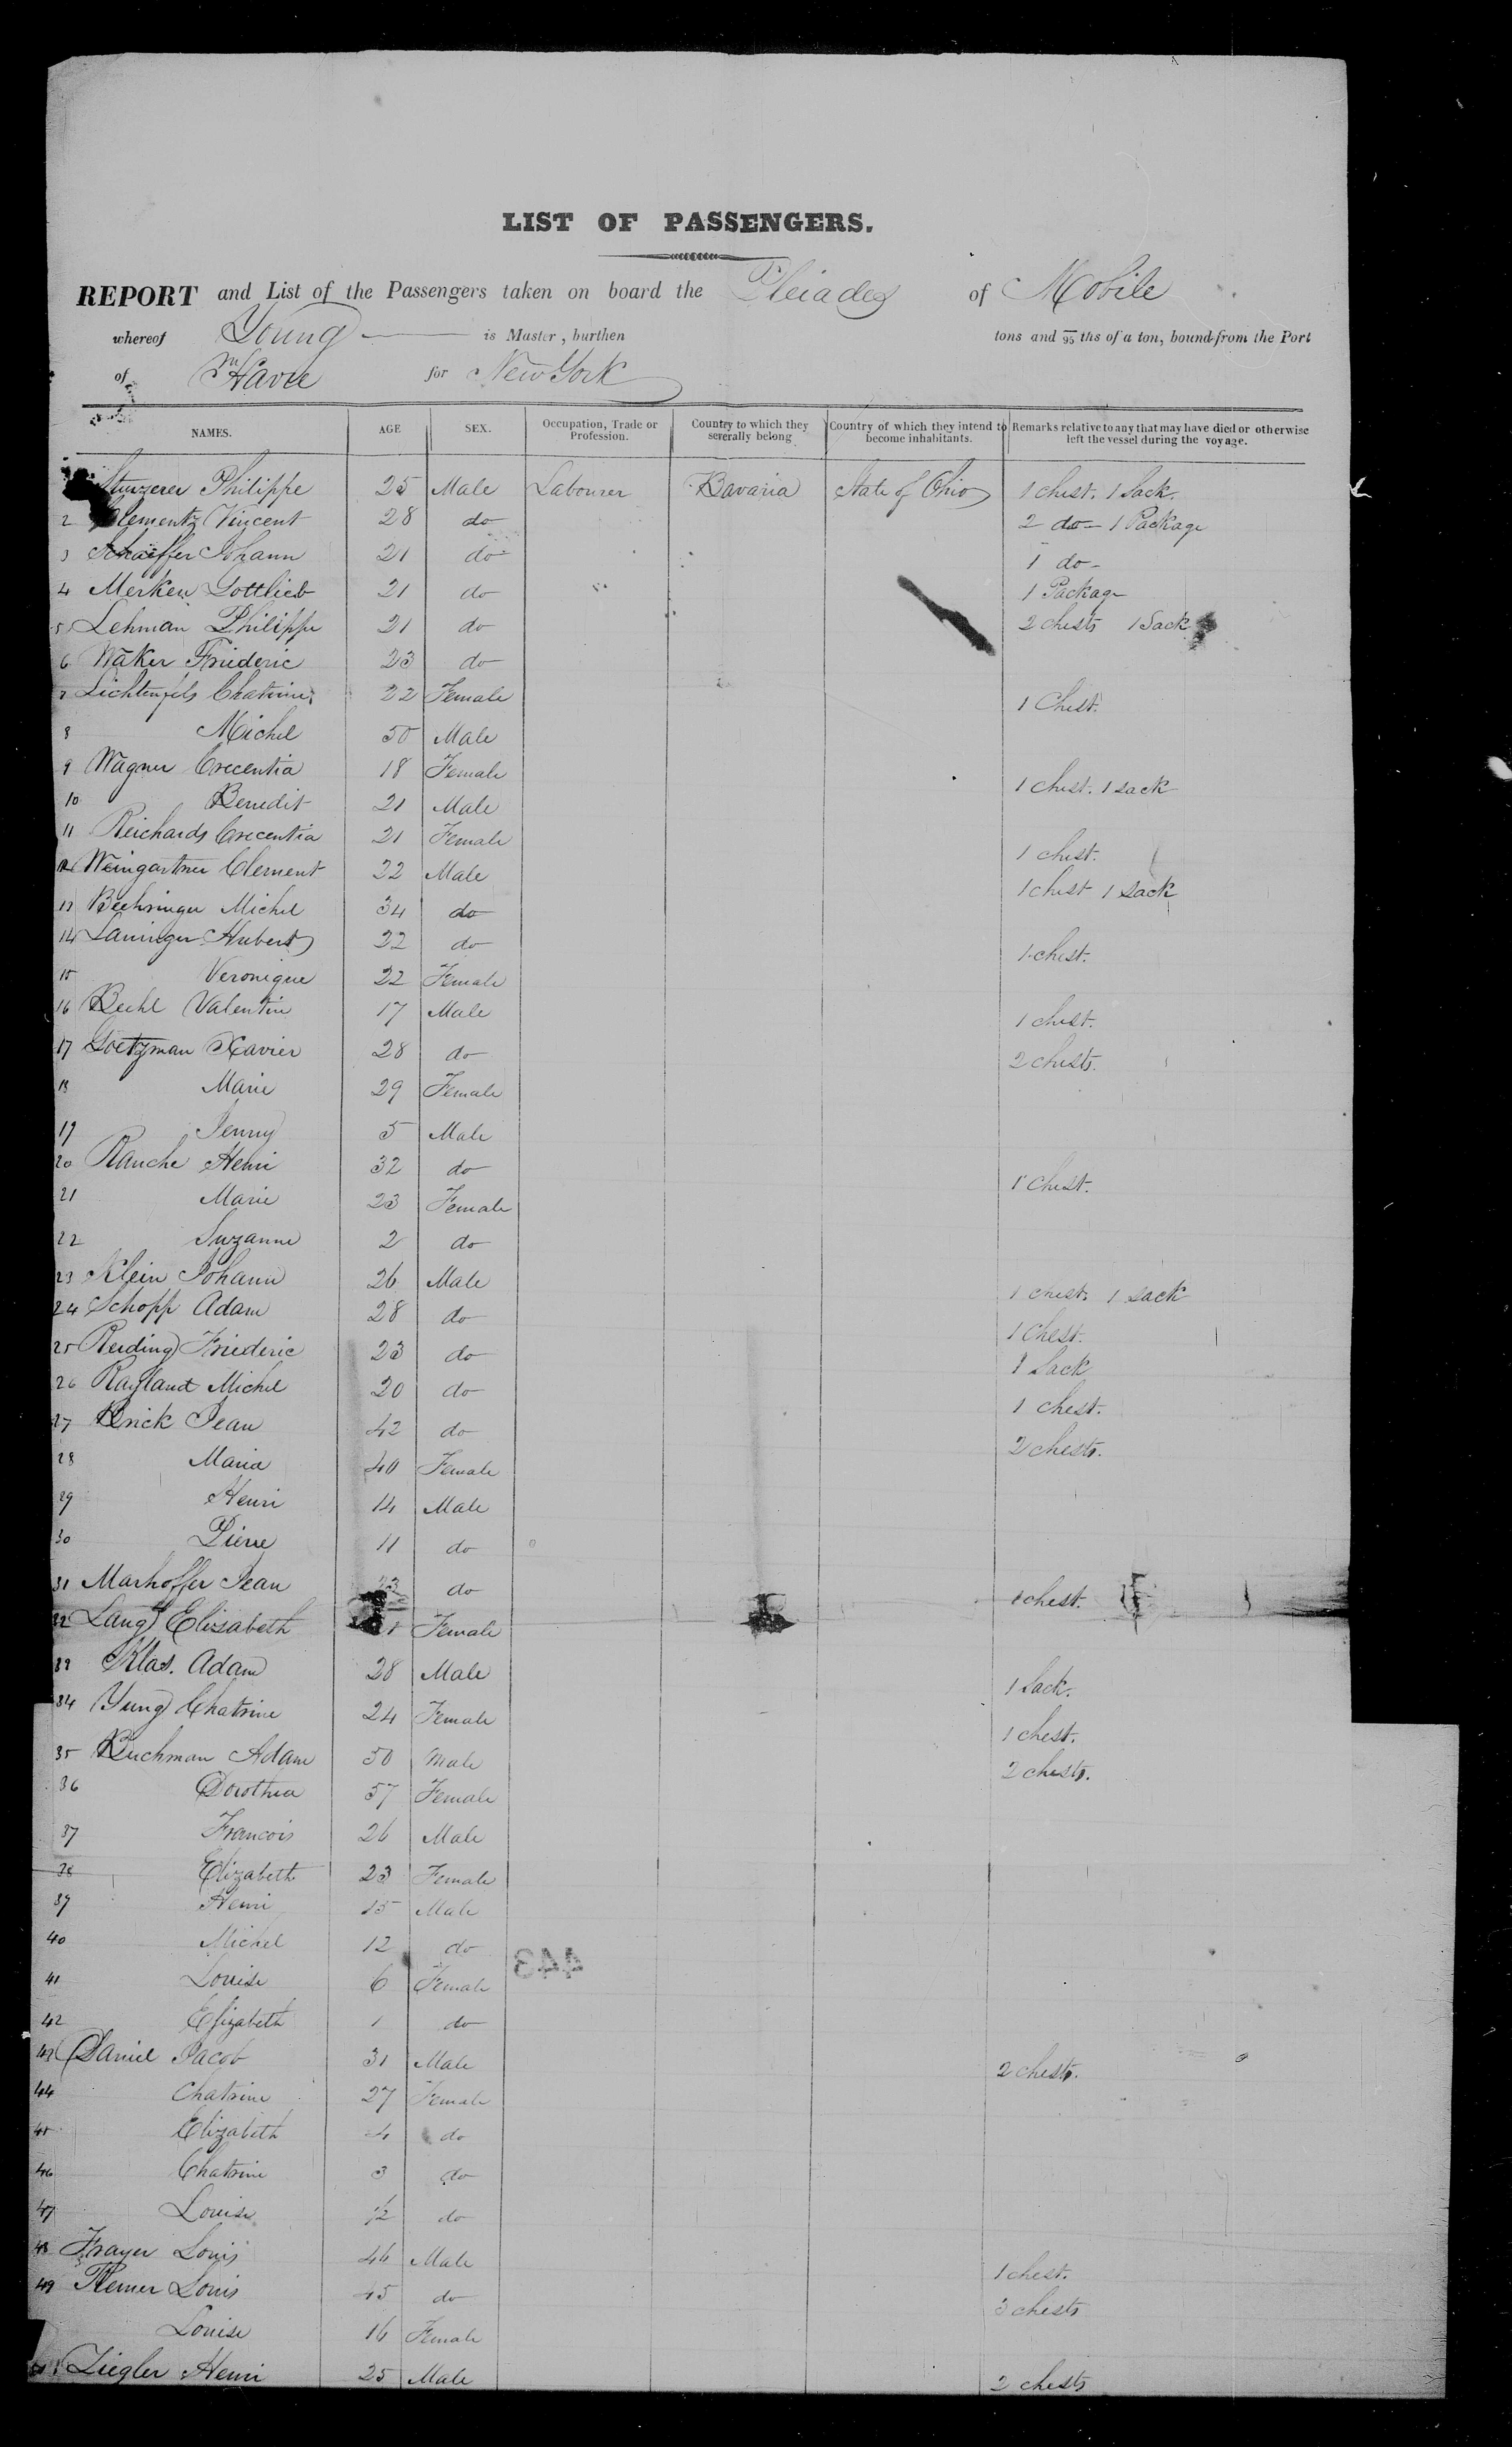 LIST OF PASSENGERS.
REPORT and List of the Passengers taken on board the Pleiades of Mobile
whereof Young is Master, burthen tons and 95 ths of a ton, bound from the Port
of Havre for New York
NAMES. AGE SEX. Occupation, Trade or Profession. Country to which they severally belong Country of which they intend to become inhabitants. Remarks relative to any that may have died or otherwise left the vessel during the voyage.
Philippe 25 Male Labourer Bavaria State of Ohio 1 chest. 1 Sack.
2 Clementz Vincent 28 do 2 do - 1 Package
3 Schaeffer Johann 21 do 1 do -
4 Merken Gottlieb 21 do 1 Package
5 Lehman Philippe 21 do 2 chests 1 Sack
6 Waker Friederic 23 do
7 Lichtenfels Chatrine 22 Female 1 Chest.
8 Michel 50 Male
9 Wagner Crecentia 18 Female 1 chest. 1 sack
10 Benedit 21 Male
11 Reichards Crecentia 21 Female 1 chest.
12 Weingartner Clement 22 Male 1 chest 1 sack
13 Bechringer Michel 34 do
14 Laninger Hubert 22 do 1 chest.
15 Veronique 22 Female
16 Beehl Valentin 17 Male 1 chest.
17 Goetzman Xavier 28 do 2 chests.
18 Marie 29 Female
19 5 Male
20 Rauche Henri 32 do 1 chest.
21 Marie 23 Female
22 Suzanne 2 do
23 Klein Johann 26 Male 1 chest. 1 sack
24 Schopp Adam 28 do 1 Chest.
25 Reiding Friederic 23 do 1 Sack
26 Rayland Michel 20 do 1 chest.
27 Brick Jean 42 do 2 chests.
28 Maria 40 Female
29 Henri 14 Male
30 Pierre 11 do
31 Marhoffer Jean 23 do 1 chest.
32 Lang Elisabeth Female
33 Klas. Adam 28 Male 1 Sack.
34 Yung Chatrine 24 Female 1 chest.
35 Buchman Adam 50 Male 2 chests.
36 Dorothea 57 Female
37 Francois 26 Male
38 Elizabeth 23 Female
39 Henri 15 Male
40 Michel 12 do
443
41 Louise 6 Female
42 Elizabeth 1 do
43 Daniel Jacob 31 Male 2 chests.
44 Chatrine 27 Female
45 Elizabeth 4 do
46 Chatrine 3 do
47 Louise 1/2 do
48 Frayer Louis 46 Male 1 chest.
49 Remer Louis 45 do 3 chests
Louise 16 Female
Ziegler Henri 25 Male 2 chests